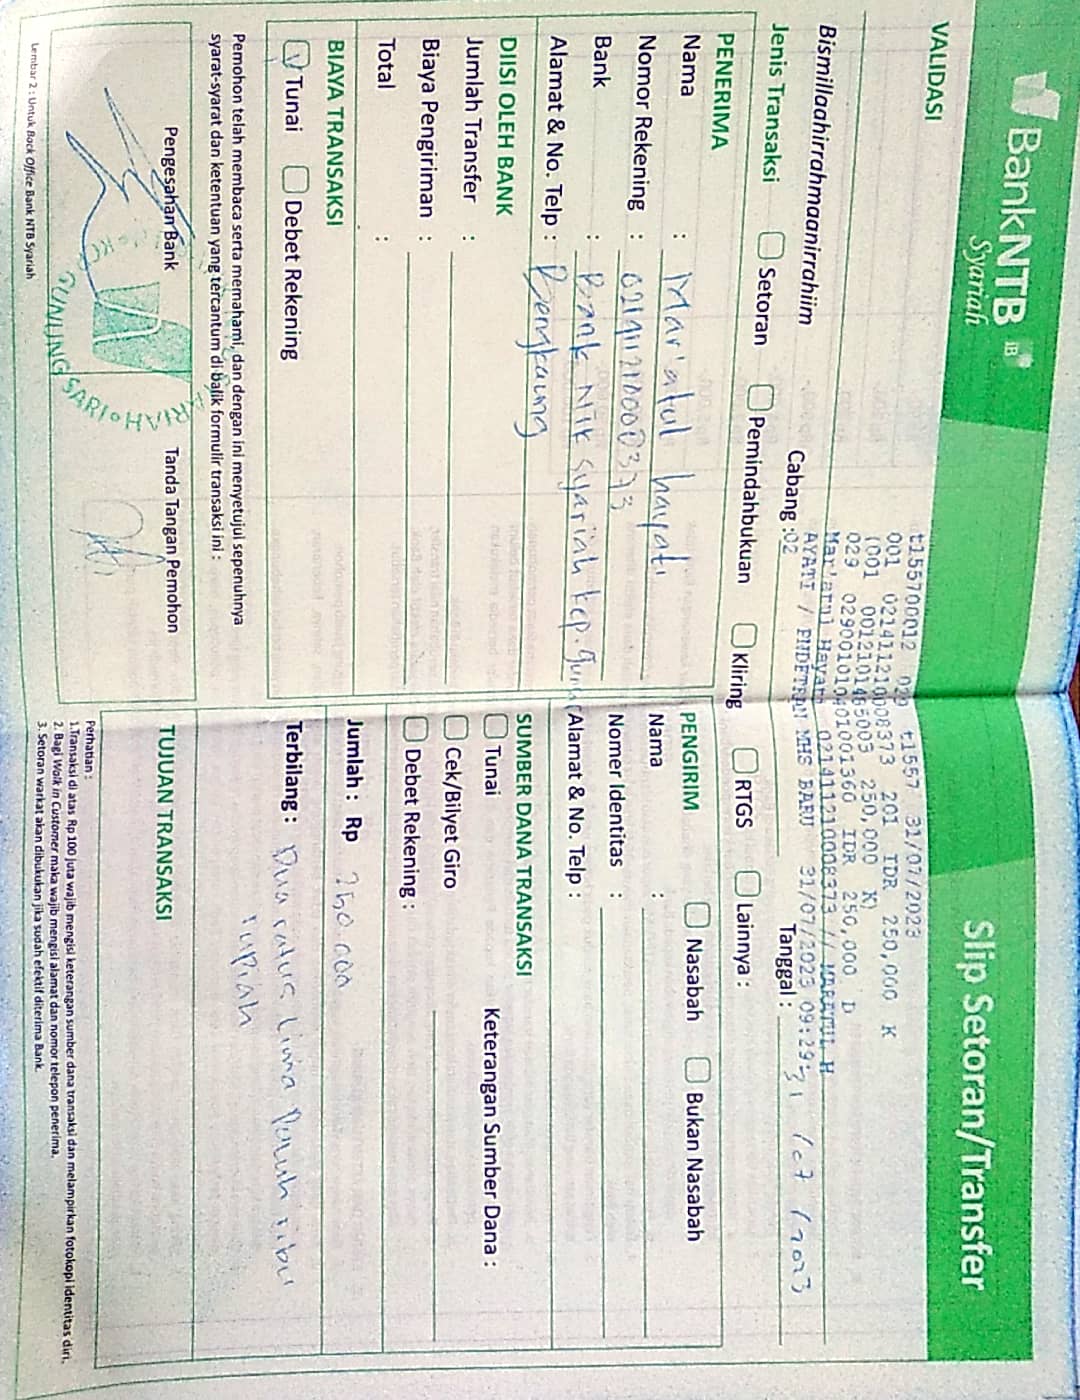 BankNTB
Syariah
iB
Slip Setoran/Transfer
VALIDASI
t155700012 029 t1557 31/07/2023
001 021411210008373 201 IDR 250,000 K
(001 0012101485003 250,000 K)
029 029001010401001360 IDR 250,000 D
Mar'atul Hayati 021411210008373 // MARATUL H
AYATI / PNDFTRAN MHS BARU 31/07/2023 09:29:
Bismillaahirrahmaanirrahiim
Cabang :02
Tanggal : 31 / 07 / 2023
Jenis Transaksi Setoran Pemindahbukuan Kliring RTGS Lainnya :
PENERIMA
Nama : Mar'atul hayati
Nomor Rekening :
Bank : Bank NTB syariah kcp.
Alamat & No. Telp :
PENGIRIM Nasabah Bukan Nasabah
Nama :
Nomer Identitas :
Alamat & No. Telp :
DIISI OLEH BANK
Jumlah Transfer :
Biaya Pengiriman :
Total :
SUMBER DANA TRANSAKSI
Tunai Keterangan Sumber Dana :
Cek/Bilyet Giro
Debet Rekening :
BIAYA TRANSAKSI
Tunai Debet Rekening
Jumlah : Rp 250.000
Terbilang : Dua ratus lima puluh ribu
rupiah
Pemohon telah membaca serta memahami, dan dengan ini menyetujui sepenuhnya
syarat-syarat dan ketentuan yang tercantum di balik formulir transaksi ini :
Pengesahan Bank
Tanda Tangan Pemohon
GUNUNG SARI
TUJUAN TRANSAKSI
Lembar 2 : Untuk Back Office Bank NTB Syariah
Perhatian :
1.Transaksi di atas Rp 100 juta wajib mengisi keterangan sumber dana transaksi dan melampirkan fotokopi identitas diri.
2. Bagi Walk in Customer maka wajib mengisi alamat dan nomor telepon penerima.
3. Setoran warkat akan dibukukan jika sudah efektif diterima Bank.